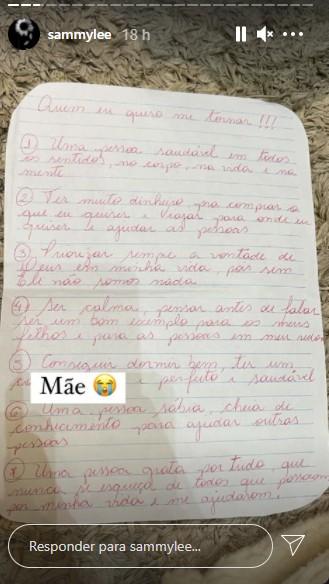 sammylee 18 h
Quem eu quero me tornar!!!
1 Uma pessoa saudável em todos
os sentidos, no corpo, na vida e na
mente
2 Ter muito dinheiro, pra comprar o
que eu quiser e viajar para onde eu
quiser e ajudar as pessoas
3 Priorizar sempre a vontade de
Deus em minha vida, pois sem
Ele não somos nada
4 Ser calma, pensar antes de falar
ser um bom exemplo para os meus
filhos e para as pessoas em meu redor
5 Conseguir dormir bem, ter um
Mãe 😭 e perfeito e saudável
6 Uma pessoa sábia, cheia de
conhecimento para ajudar outras
pessoas
7 Uma pessoa grata por tudo, que
nunca se esqueça de todos que passaram
por minha vida e me ajudaram.
Responder para sammylee...